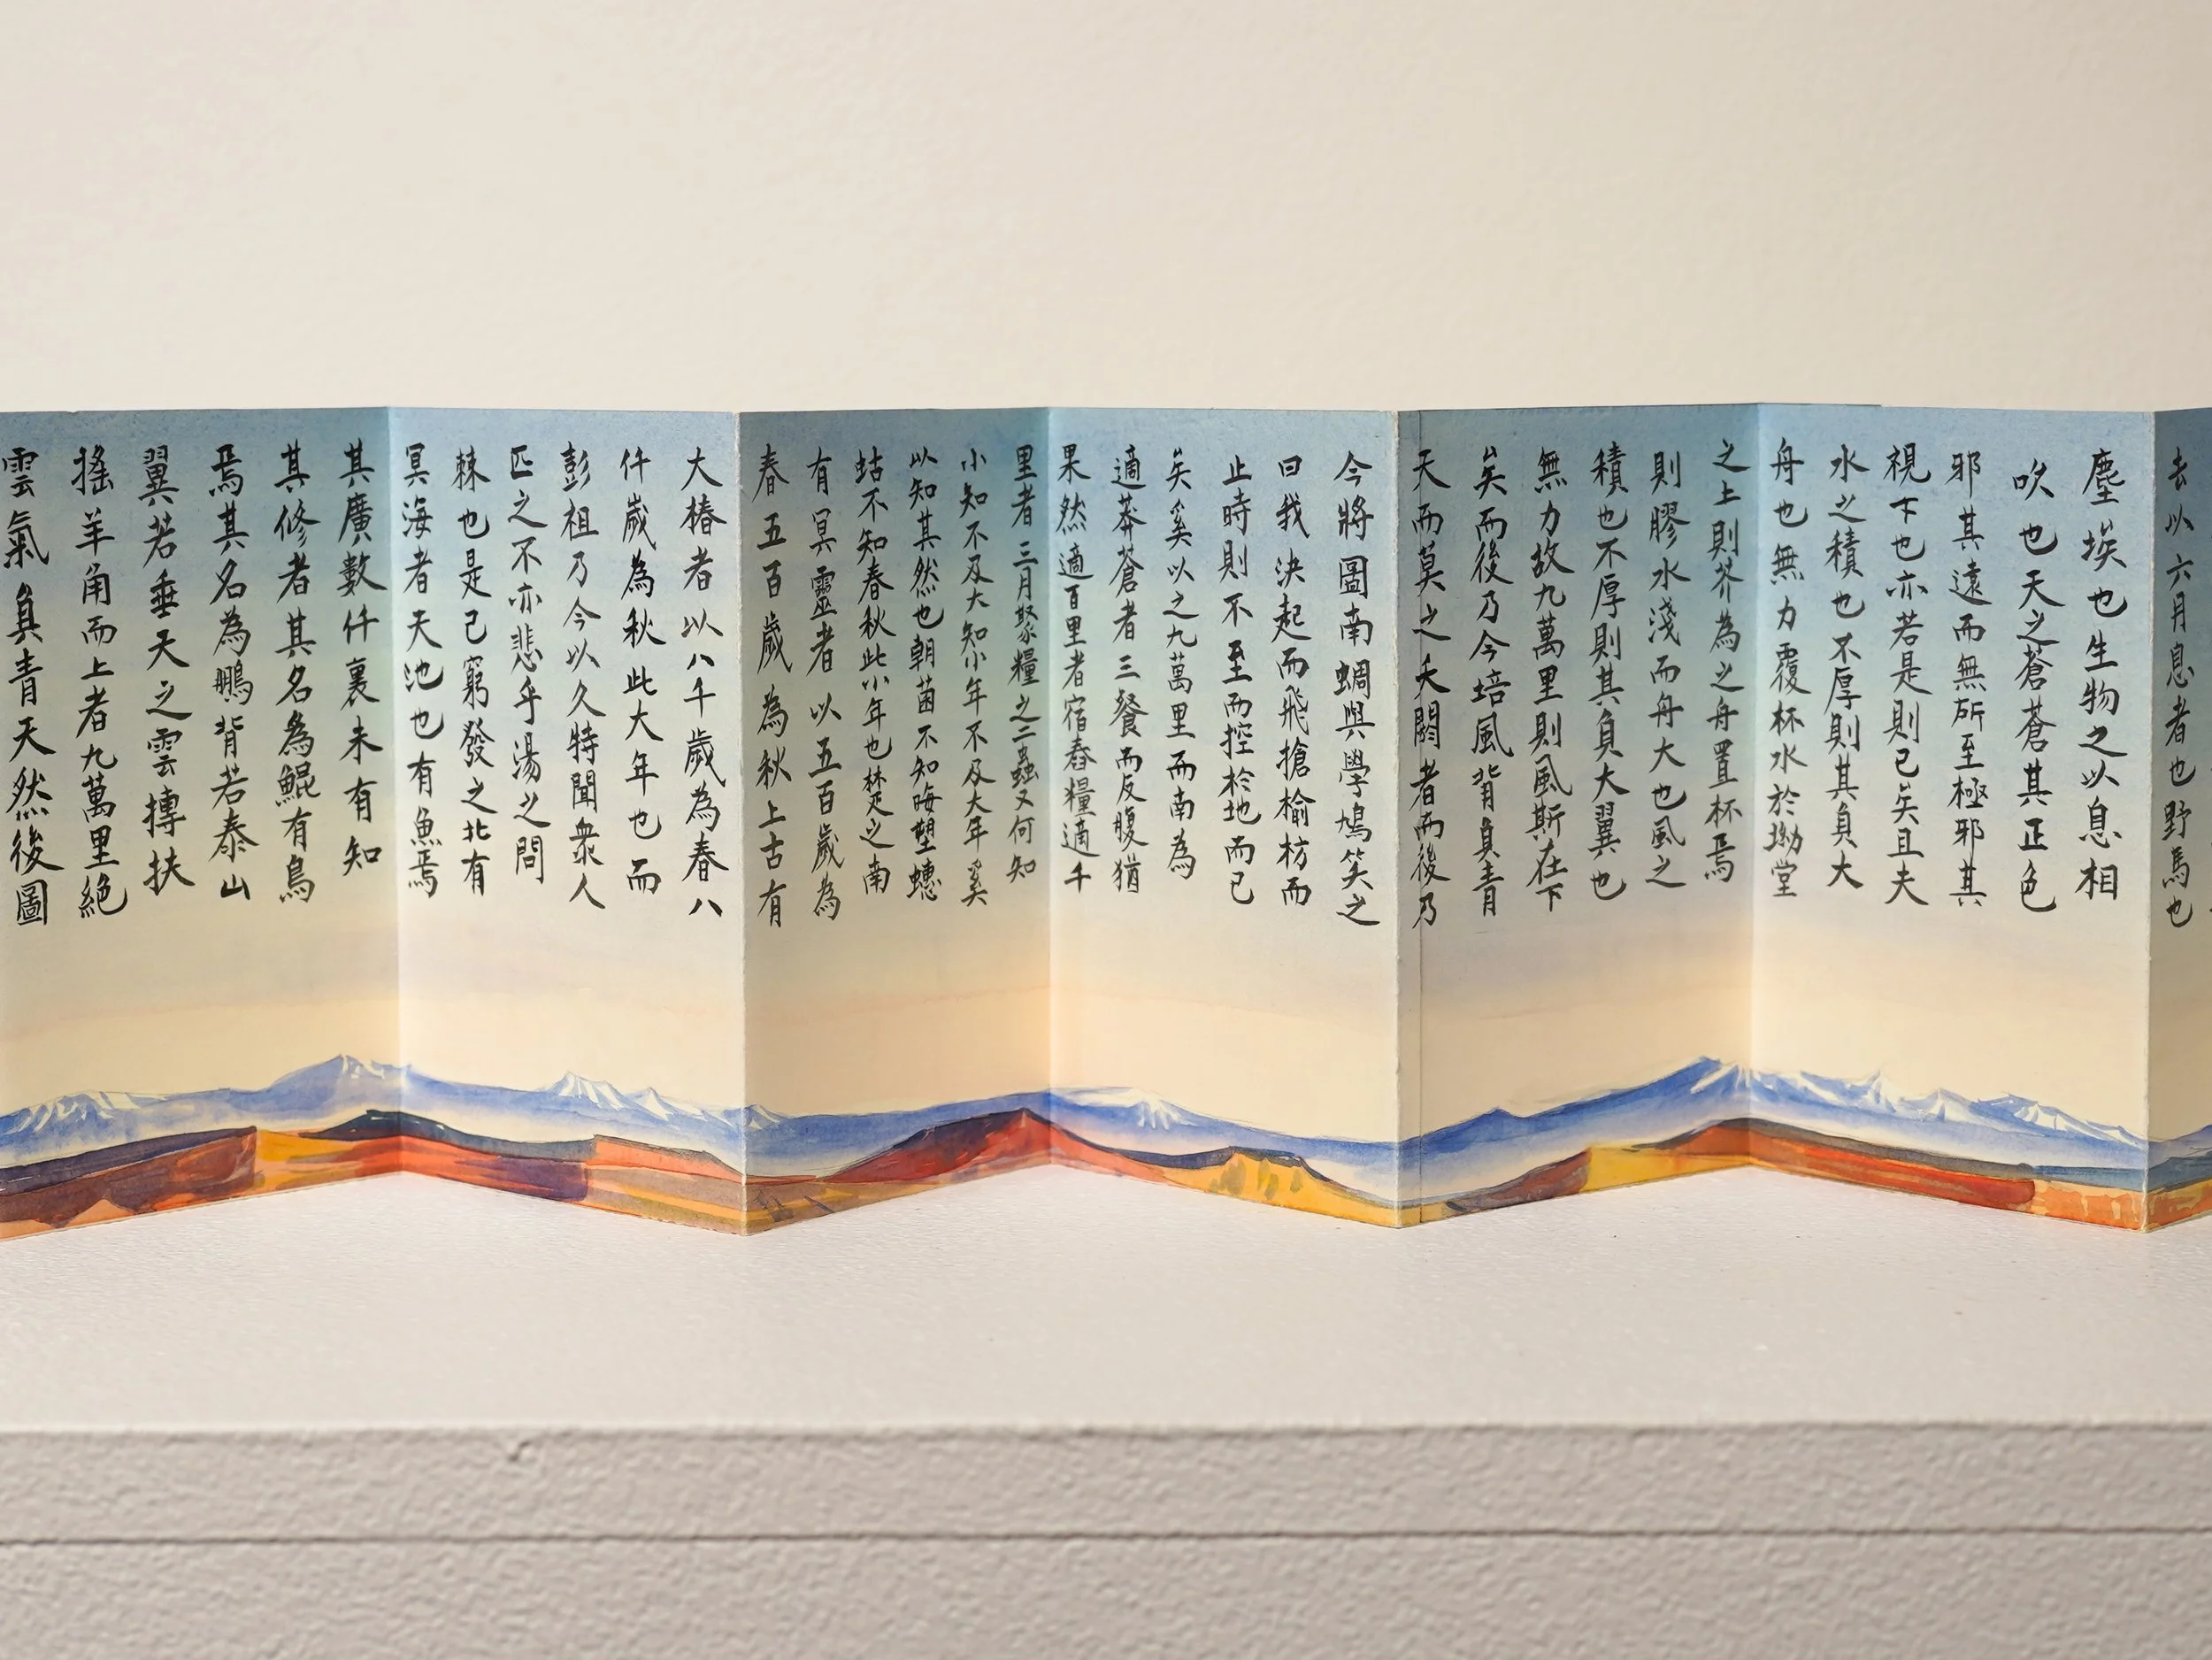 去以六月息者也野馬也
塵埃也生物之以息相
吹也天之蒼蒼其正色
邪其遠而無所至極邪其
視下也亦若是則已矣且夫
水之積也不厚則其負大
舟也無力覆杯水於坳堂
之上則芥為之舟置杯焉
則膠水淺而舟大也風之
積也不厚則其負大翼也
無力故九萬里則風斯在下
矣而後乃今培風背負青
天而莫之夭閼者而後乃
今將圖南蜩與學鳩笑之
曰我決起而飛搶榆枋而
止時則不至而控於地而已
矣奚以之九萬里而南為
適莽蒼者三餐而反腹猶
果然適百里者宿舂糧適千
里者三月聚糧之二蟲又何知
小知不及大知小年不及大年奚
以知其然也朝菌不知晦塑蟪
蛄不知春秋此小年也楚之南
有冥靈者以五百歲為
春五百歲為秋上古有
大椿者以八千歲為春八
仟歲為秋此大年也而
彭祖乃今以久特聞衆人
匹之不亦悲乎湯之問
棘也是已窮發之北有
冥海者天池也有魚焉
其廣數仟裏未有知
其修者其名為鯤有鳥
焉其名為鵬背若泰山
翼若垂天之雲摶扶
搖羊角而上者九萬里絕
雲氣負青天然後圖